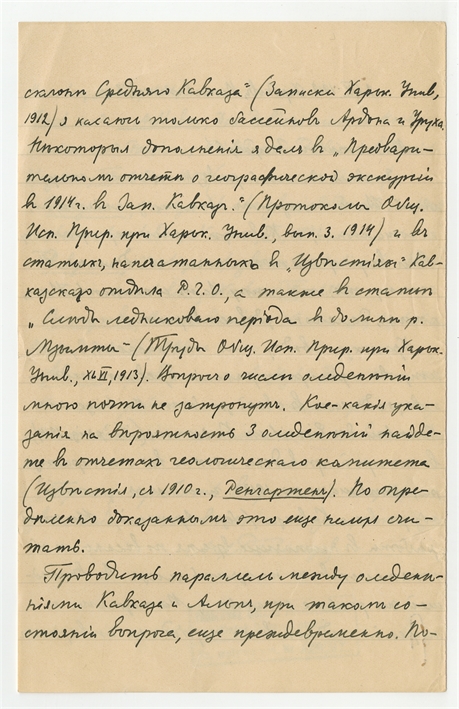 склоны Средняго Кавказа" (Записки Харьк. Унив,
1912) я касаюсь только бассейновъ Ардона и Уруха.
Нѣкоторыя дополненія я делъ въ „Предвари-
тельномъ отчетѣ о географической экскурсіи
въ 1914 г. въ Зап. Кавказъ." (Протоколы Общ.
Исп. Прир. при Харьк. Унив., вып. 3. 1914) и въ
статьяхъ, напечатанныхъ въ „Извѣстіяхъ" Кав-
казскаго отдѣла Р.Г.О., а также въ статьѣ
„Слѣды ледниковаго періода въ долинѣ р.
Мзымты" (Труды Общ. Исп. Прир. при Харьк.
Унив., XLVI, 1913). Вопросъ о числѣ оледенѣній
мною почти не затронутъ. Кое-какія ука-
занія на вѣроятность 3 оледенѣній найде-
те въ отчетахъ геологическаго комитета
(Извѣстія, съ 1910 г., Ренгартенъ). Но опре-
дѣленно доказаннымъ это еще нельзя счи-
тать.
Проводить параллель между оледенѣ-
ніями Кавказа и Альпъ, при такомъ со-
стояніи вопроса, еще преждевременно. По-